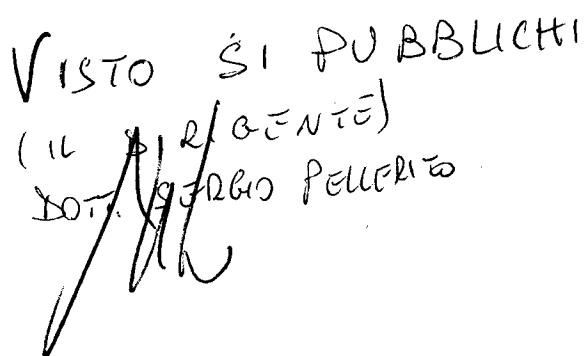 VISTO SI PUBBLICHI
(IL DIRIGENTE)
DOTT. SERGIO PELLERITO